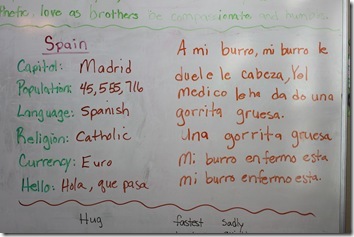 thetic, love as brothers be compassionate and humble.
Spain
Capitol: Madrid
Population: 45,555,716
Language: Spanish
Religion: Catholic
Currency: Euro
Hello: Hola, que pasa
A mi burro, mi burro le
duele le cabeza, Yel
medico le ha da do una
gorrita gruesa.
Una gorrita gruesa
Mi burro enfermo esta
mi burro enfermo esta.
Hug
fastest sadly